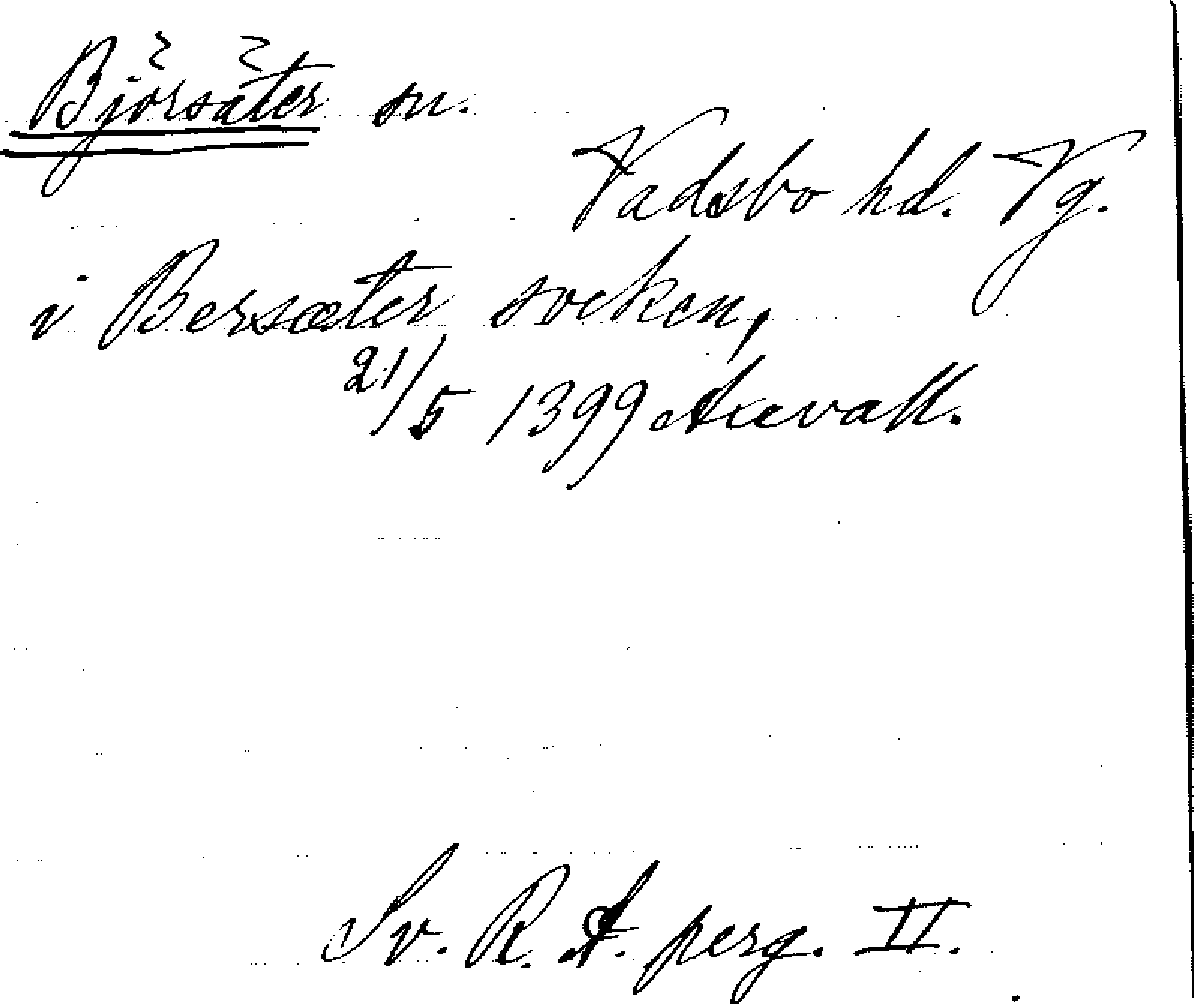 Björsäter sn.
Vadsbo hd. Vg.
i Bersæter soken,
21/5 1399 Axevall.
Sv. R. A. perg. II.